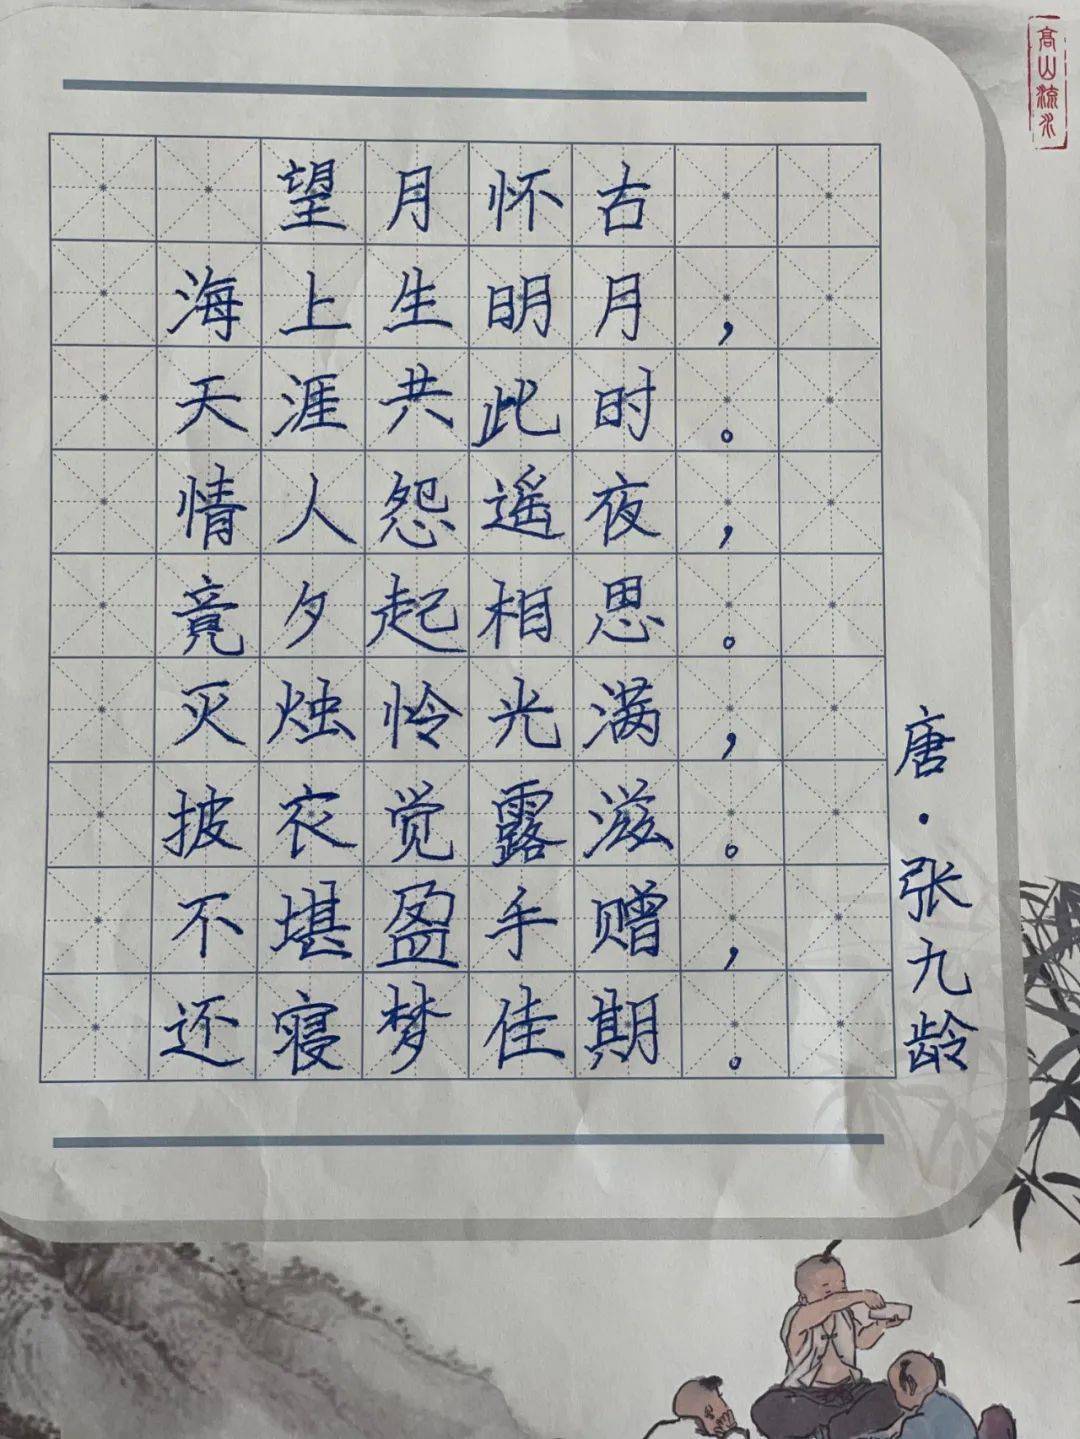 望月怀古
海上生明月，
天涯共此时。
情人怨遥夜，
竟夕起相思。
灭烛怜光满，
披衣觉露滋。
不堪盈手赠，
还寝梦佳期。
唐·张九龄
高山流水